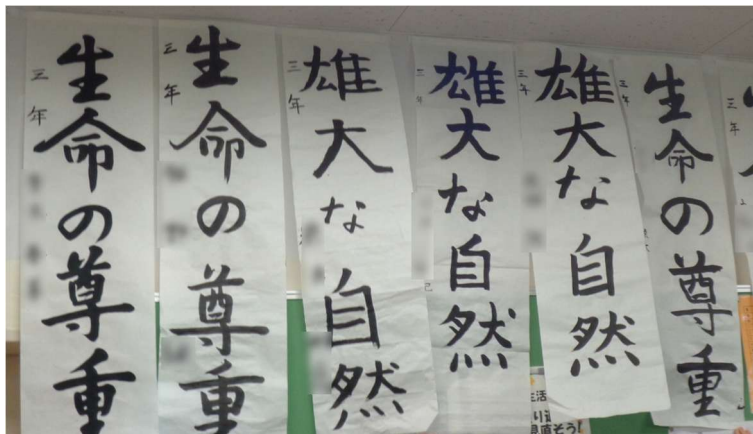 生命の尊重
三年
生命の尊重
三年
雄大な自然
三年
雄大な自然
三年
雄大な自然
三年
生命の尊重
三年
三年
生活
見直そう!